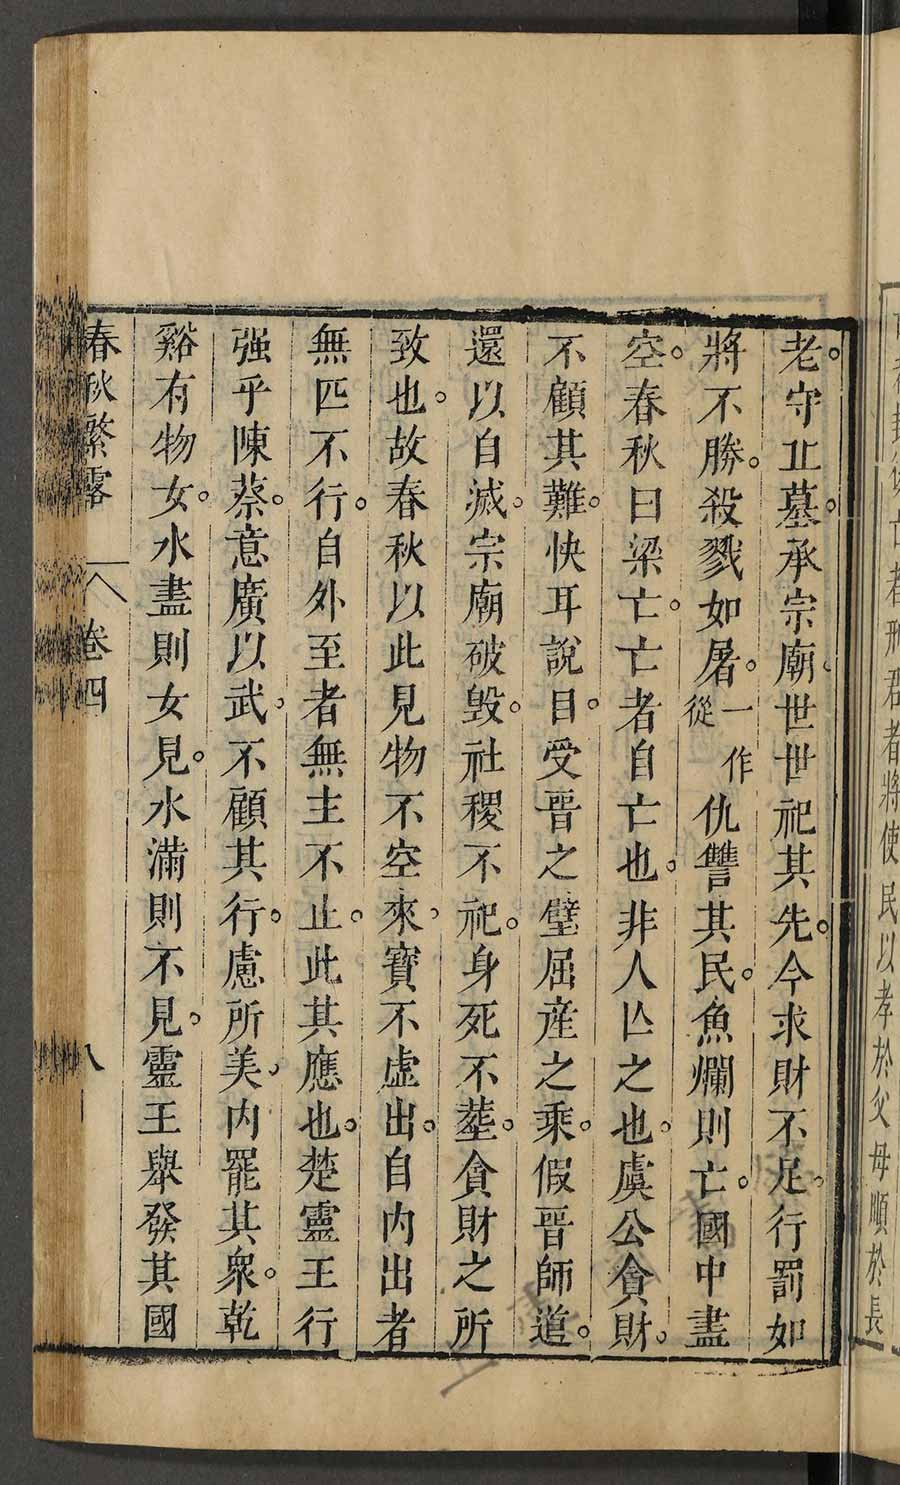 老守丘墓承宗廟世世祀其先今求財不足行罰如
將不勝殺戮如屠一作從仇讐其民魚爛則亡國中盡
空春秋曰梁亡亡者自亡也非人亾之也虞公貪財
不顧其難快耳說目受晋之璧屈産之乘假晋師道
還以自滅宗廟破毀社稷不祀身死不塟貪財之所
致也故春秋以此見物不空來寳不虛出自内出者
無匹不行自外至者無主不止此其應也楚靈王行
强乎陳蔡意廣以武不顧其行慮所美内罷其衆乾
谿有物女水盡則女見水滿則不見靈王舉發其國
春秋繁露 卷四 八
者將使民以孝於父母順於長